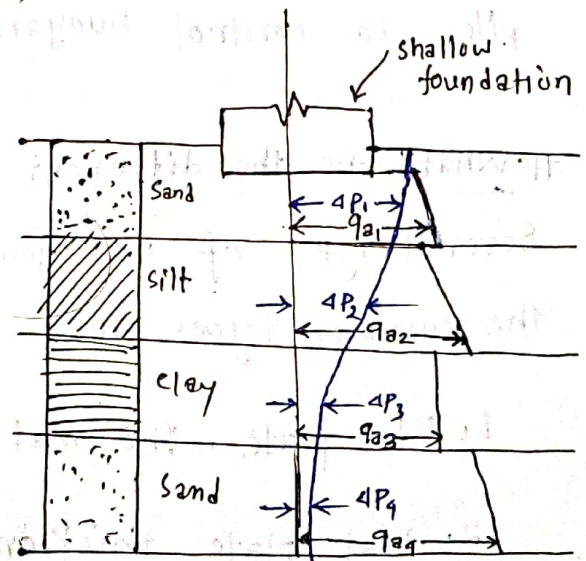 shallow
foundation
Sand
ΔP₁
qa₁
silt
ΔP₂
qa₂
clay
ΔP₃
qa₃
Sand
ΔP₄
qa₄